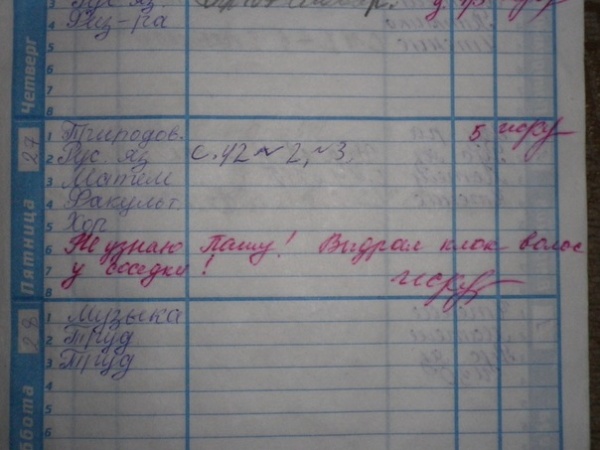 3 Рус яз.
4 Физ-ра
5
6
7
8
Четверг
27
1 Природов. 5
2 Рус яз с. 42 № 2, № 3.
3 Матем
4 Факульт.
5 Хор
6 Не узнаю Пашу! Выдрал клок волос
7 у соседки!
8
Пятница
28
1 Музыка
2 Труд
3 Труд
4
5
6
ббота